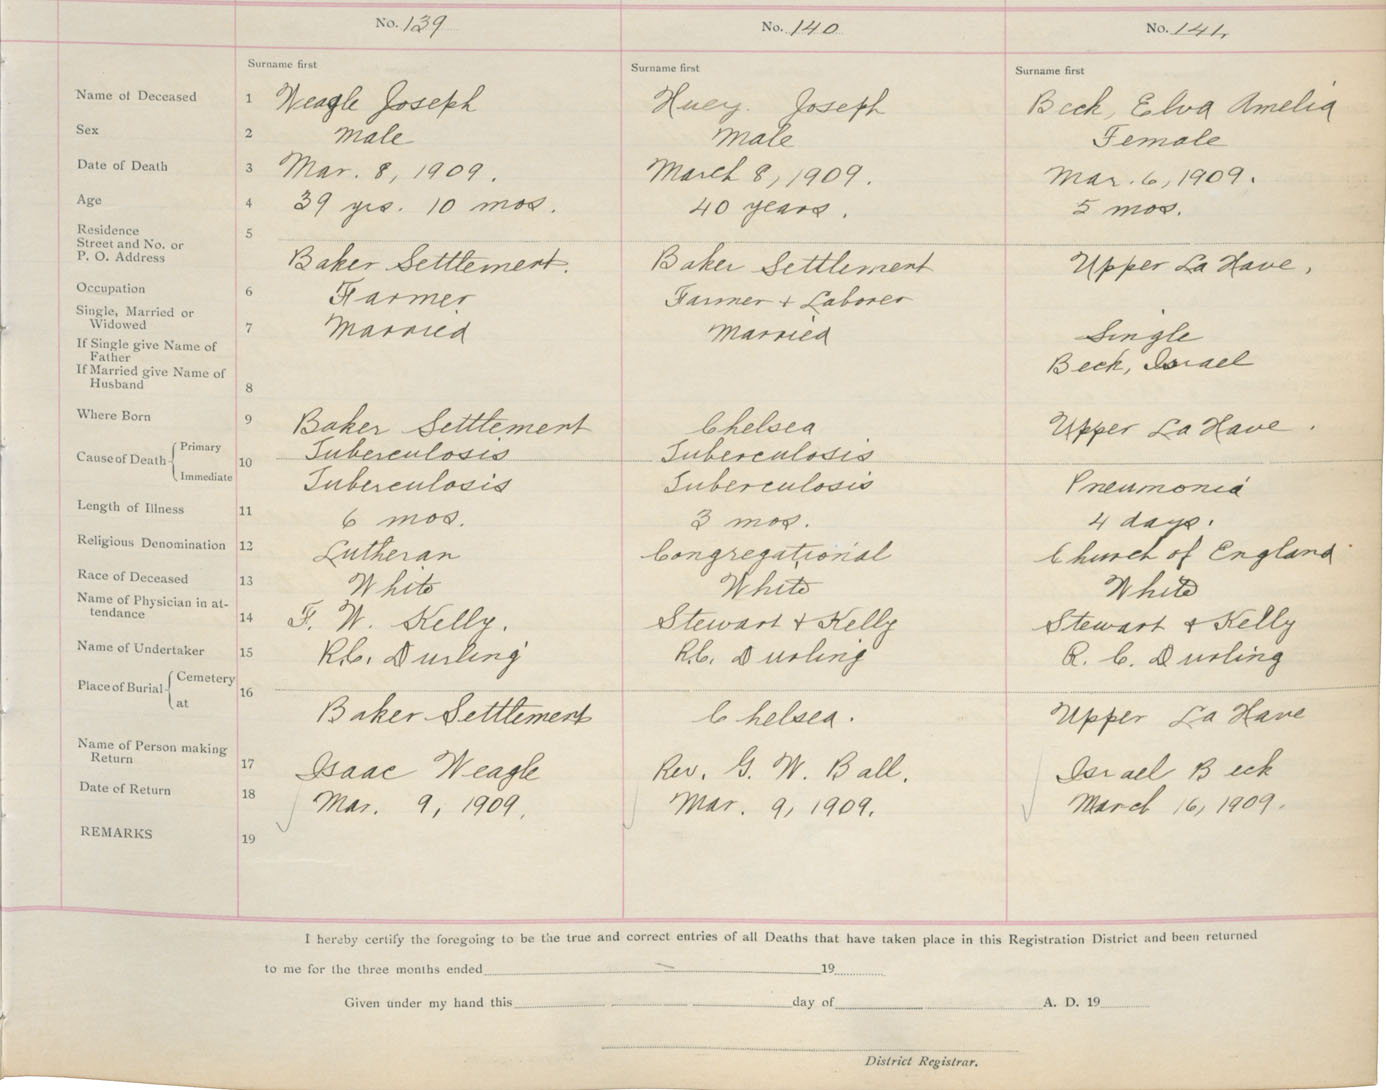 No. 139 No. 140 No. 141
Surname first Surname first Surname first
Name of Deceased 1 Weagle Joseph Huey. Joseph Beck, Elva Amelia
Sex 2 Male Male Female
Date of Death 3 Mar. 8, 1909. March 8, 1909. Mar. 6, 1909.
Age 4 39 yrs. 10 mos. 40 years. 5 mos.
Residence 5
Street and No. or
P. O. Address Baker Settlement. Baker Settlement Upper La Have.
Occupation 6 Farmer Farmer + Laborer
Single, Married or
Widowed 7 Married Married Single
If Single give Name of
Father Beck, Israel
If Married give Name of
Husband 8
Where Born 9 Baker Settlement Chelsea Upper La Have.
Cause of Death Primary Tuberculosis Tuberculosis
10
Immediate Tuberculosis Tuberculosis Pneumonia
Length of Illness 11 6 mos. 3 mos. 4 days.
Religious Denomination 12 Lutheran Congregational Church of England
Race of Deceased 13 White White White
Name of Physician in at-
tendance 14 F. W. Kelly. Stewart + Kelly Stewart + Kelly
Name of Undertaker 15 R.C. Durling R.C. Durling R. C. Durling
Place of Burial Cemetery 16
at Baker Settlement Chelsea. Upper La Have
Name of Person making
Return 17 Isaac Weagle Rev. G. W. Ball. Israel Beck
Date of Return 18 Mar. 9, 1909. Mar. 9, 1909. March 16, 1909.
REMARKS 19
I hereby certify the foregoing to be the true and correct entries of all Deaths that have taken place in this Registration District and been returned
to me for the three months ended 19
Given under my hand this day of A. D. 19
District Registrar.